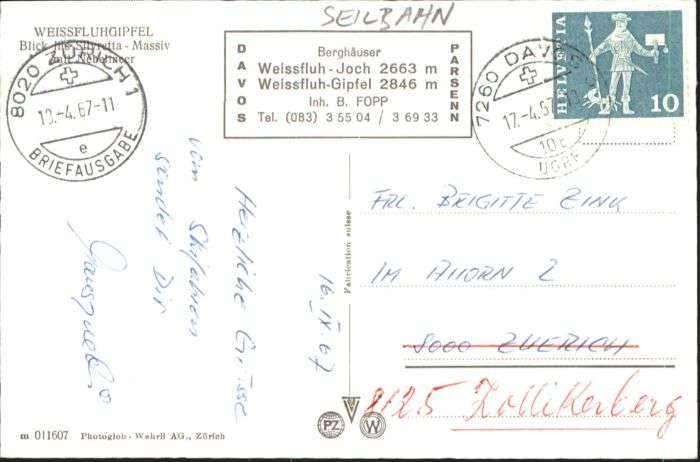 SEILBAHN
WEISSFLUHGIPFEL
Blick ins Silvretta - Massiv
mit Nebelmeer
8020 ZÜRICH 1
-4.67-11
e
BRIEFAUSGABE
DAVOS
PARSENN
Berghäuser
Weissfluh-Joch 2663 m
Weissfluh-Gipfel 2846 m
Inh. B. FOPP
Tel. (083) 3 55 04 / 3 69 33
7260 DAVOS
17.-4.67
10e
DORF
HELVETIA
10
Herzliche Grüsse
vom Skifahren
sendet Dir
16. IV 67
Fabrication suisse
FRL. BRIGITTE ZINK
IM AHORN 2
8000 ZUERICH
8125 Zollikerberg
PZ
W
m 011607 Photoglob-Wehrli AG., Zürich